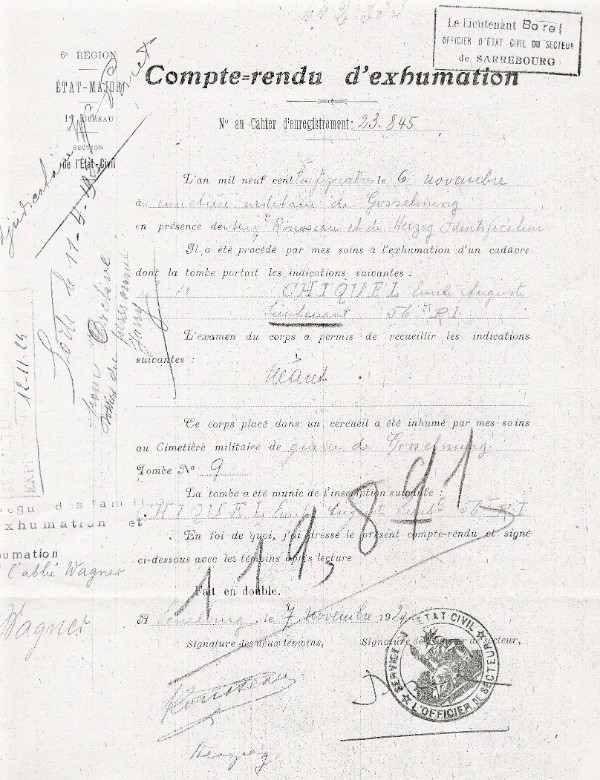 Le Lieutenant Borel
OFFICIER D'ÉTAT CIVIL DU SECTEUR
de SARREBOURG
6e RÉGION
ÉTAT-MAJOR
1er BUREAU
SECTION
de l'État-Civil
Compte=rendu d'exhumation
No au Cahier d'enregistrement: 23.845
L'an mil neuf cent vingt quatre le 6 novembre
au cimetière militaire de Gosselming
en présence de Rousseau et de Herzog Identification
Il a été procédé par mes soins à l'exhumation d'un cadavre
dont la tombe portait les indications suivantes :
CHIQUEL Emile Auguste
Lieutenant 56e R.I.
L'examen du corps a permis de recueillir les indications
suivantes :
Néant
Ce corps placé dans un cercueil a été inhumé par mes soins
au Cimetière militaire de guerre de Gosselming
Tombe No 9
La tombe a été munie de l'inscription suivante :
En foi de quoi, j'ai dressé le présent compte-rendu et signé
ci-dessous avec les témoins après lecture
Fait en double.
A Sarrebourg, le 7 novembre 1924
Signature des deux témoins,
Signature de secteur,
Rousseau
SERVICE ÉTAT CIVIL
L'OFFICIER DE SECTEUR
119,891
12.11.24
xhumation et
umation
l'abbé Wagner
Wagner